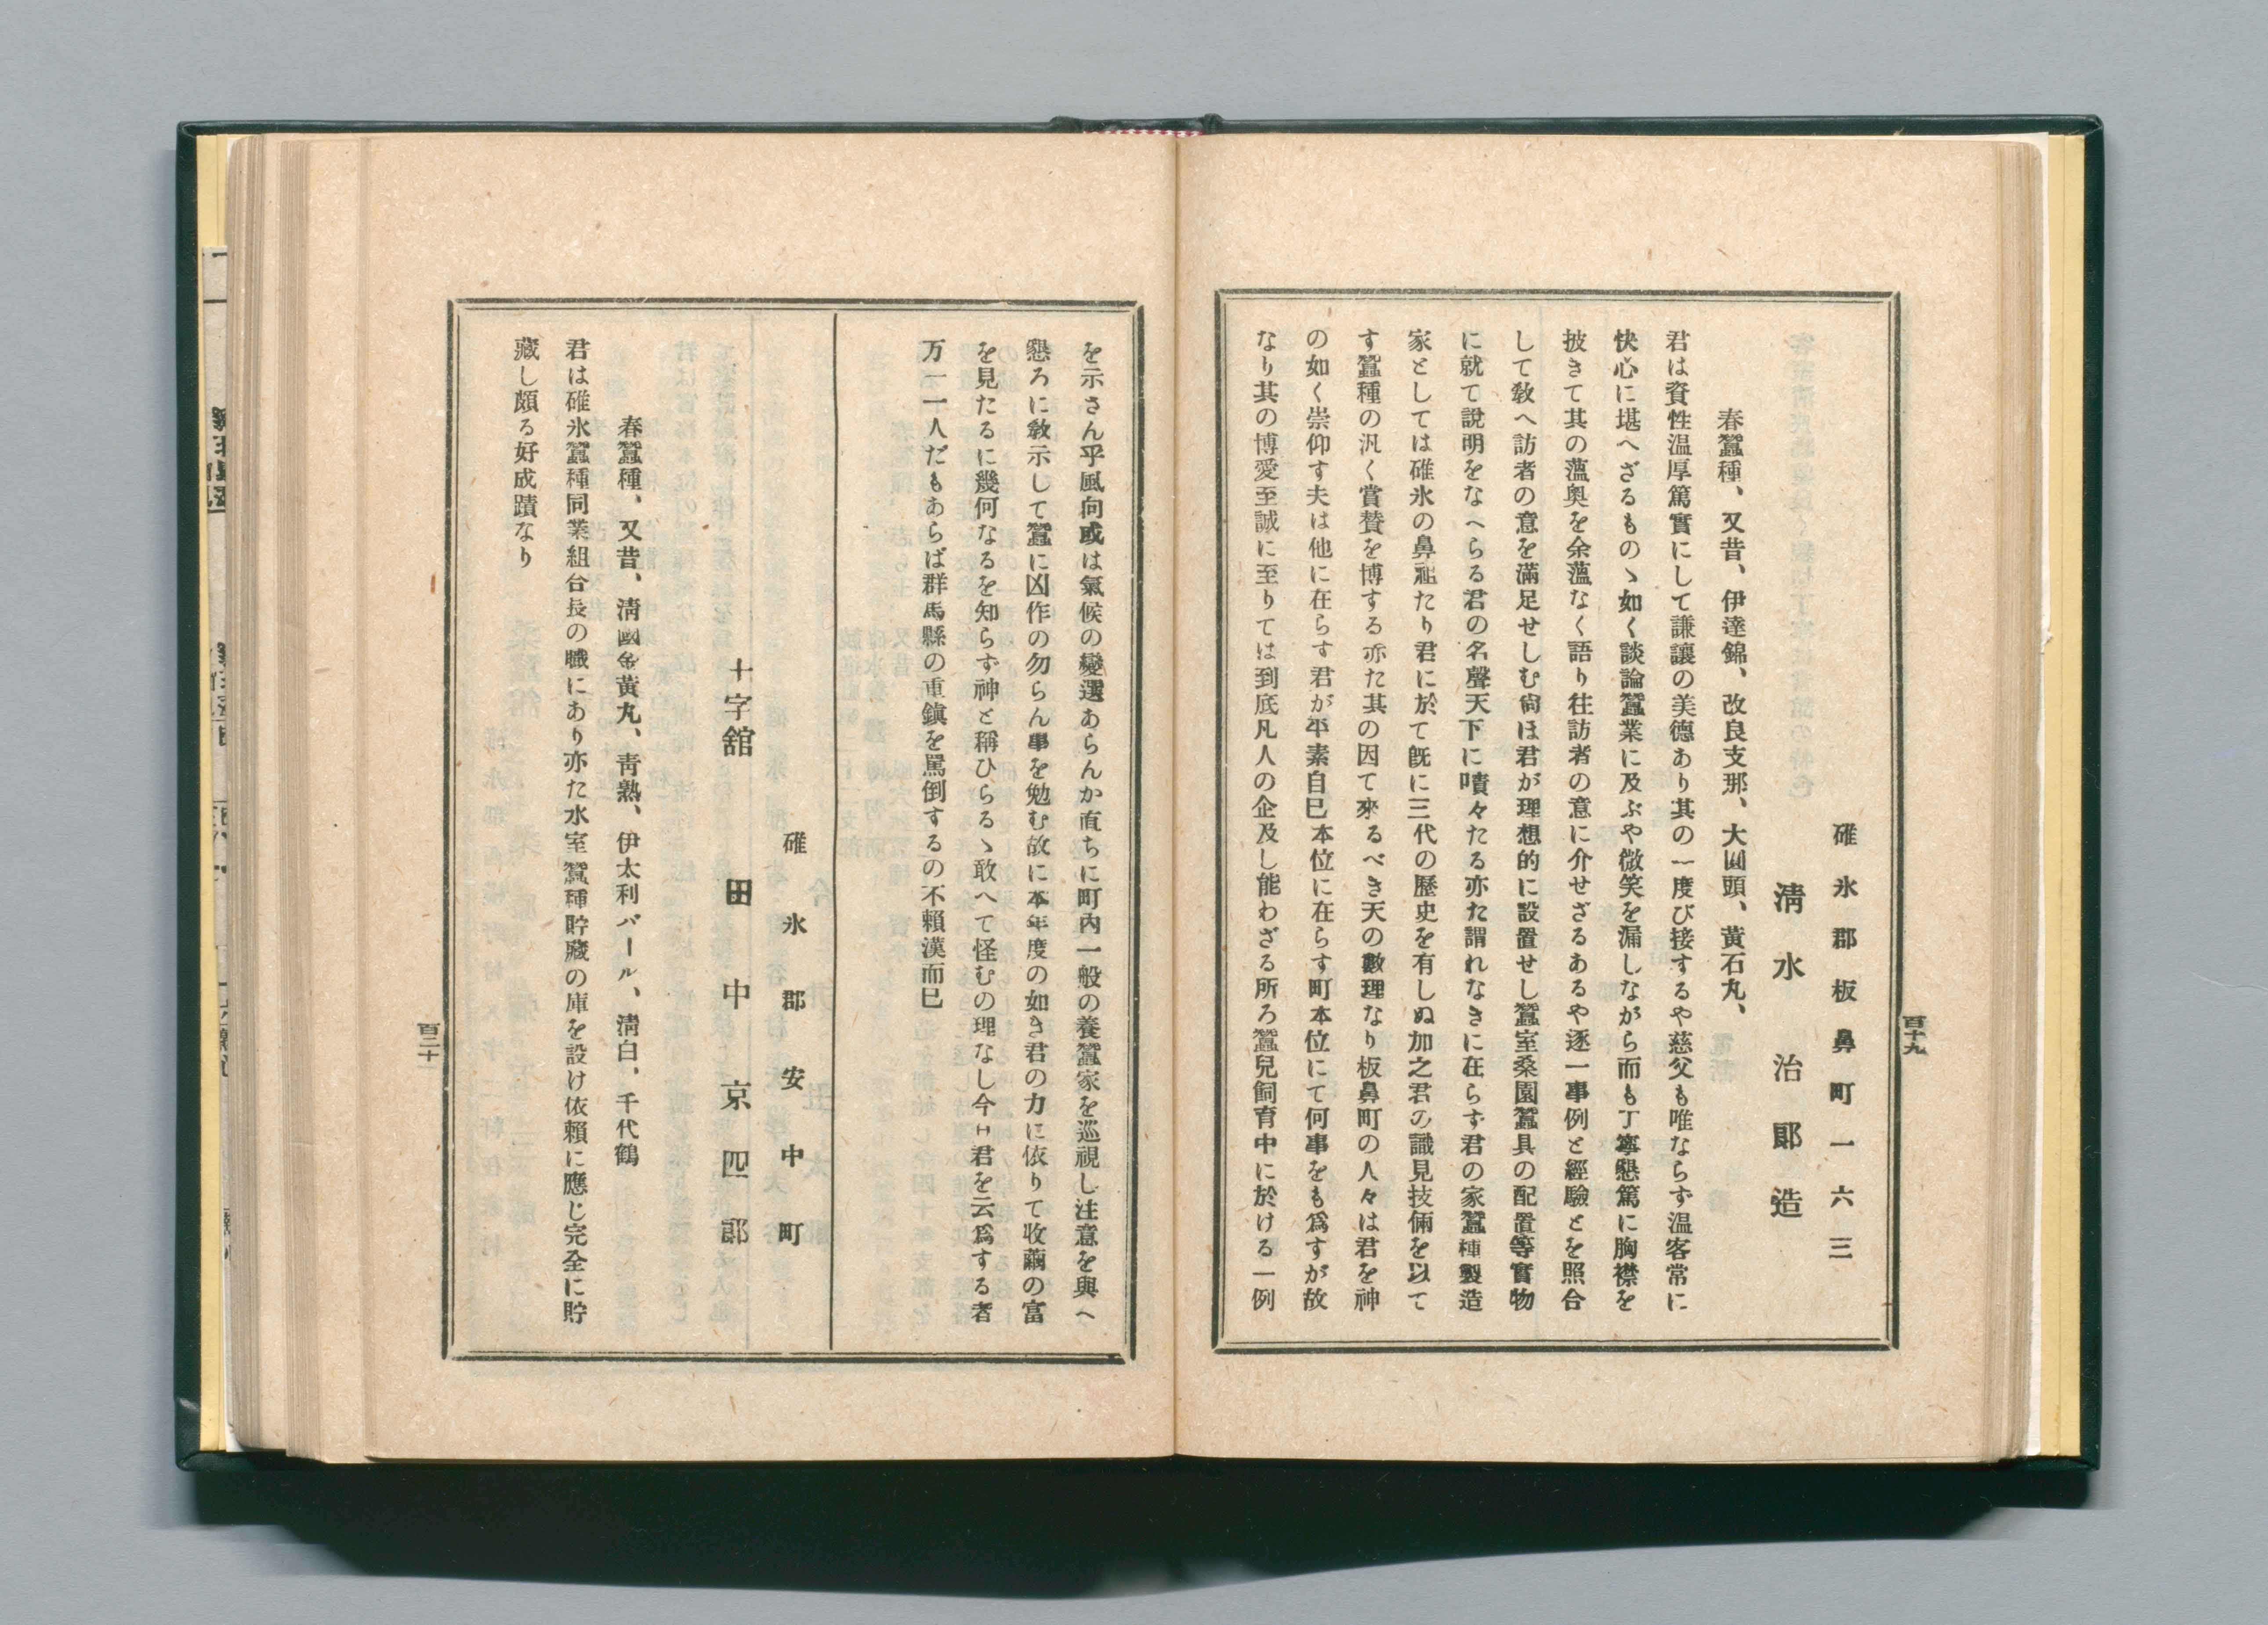 百十九
碓氷郡板鼻町一六三
淸水治郞造
春蠶種、又昔、伊達錦、改良支那、大圓頭、黃石丸、
君は資性温厚篤實にして謙讓の美德あり其の一度び接するや慈父も唯ならず温客常に
快心に堪へざるものゝ如く談論蠶業に及ぶや微笑を漏しながら而も丁寧懇篤に胸襟を
披きて其の薀奥を余薀なく語り往訪者の意に介せざるあるや逐一事例と經驗とを照合
して敎へ訪者の意を滿足せしむ尙ほ君が理想的に設置せし蠶室桑園蠶具の配置等實物
に就て說明をなへらる君の名聲天下に嘖々たる亦た謂れなきに在らず君の家蠶種製造
家としては碓氷の鼻祖たり君に於て旣に三代の歷史を有しぬ加之君の識見技倆を以て
す蠶種の汎く賞賛を博する亦た其の因て來るべき天の數理なり板鼻町の人々は君を神
の如く崇仰す夫は他に在らす君が平素自已本位に在らす町本位にて何事をも爲すが故
なり其の博愛至誠に至りては到底凡人の企及し能わざる所ろ蠶兒飼育中に於ける一例
を示さん乎風向或は氣候の變遷あらんか直ちに町內一般の養蠶家を巡視し注意を與へ
懇ろに敎示して蠶に凶作の勿らん事を勉む故に本年度の如き君の力に依りて收繭の富
を見たるに幾何なるを知らず神と稱ひらるゝ敢へて怪むの理なし今日君を云爲する者
万一一人だもあらば群馬縣の重鎭を罵倒するの不賴漢而已
碓氷郡安中町
十字舘 田中京四郞
春蠶種、又昔、淸國金黃丸、靑熟、伊太利バール、淸白、千代鶴
君は碓氷蠶種同業組合長の職にあり亦た水室蠶種貯藏の庫を設け依賴に應じ完全に貯
藏し頗る好成蹟なり
百二十